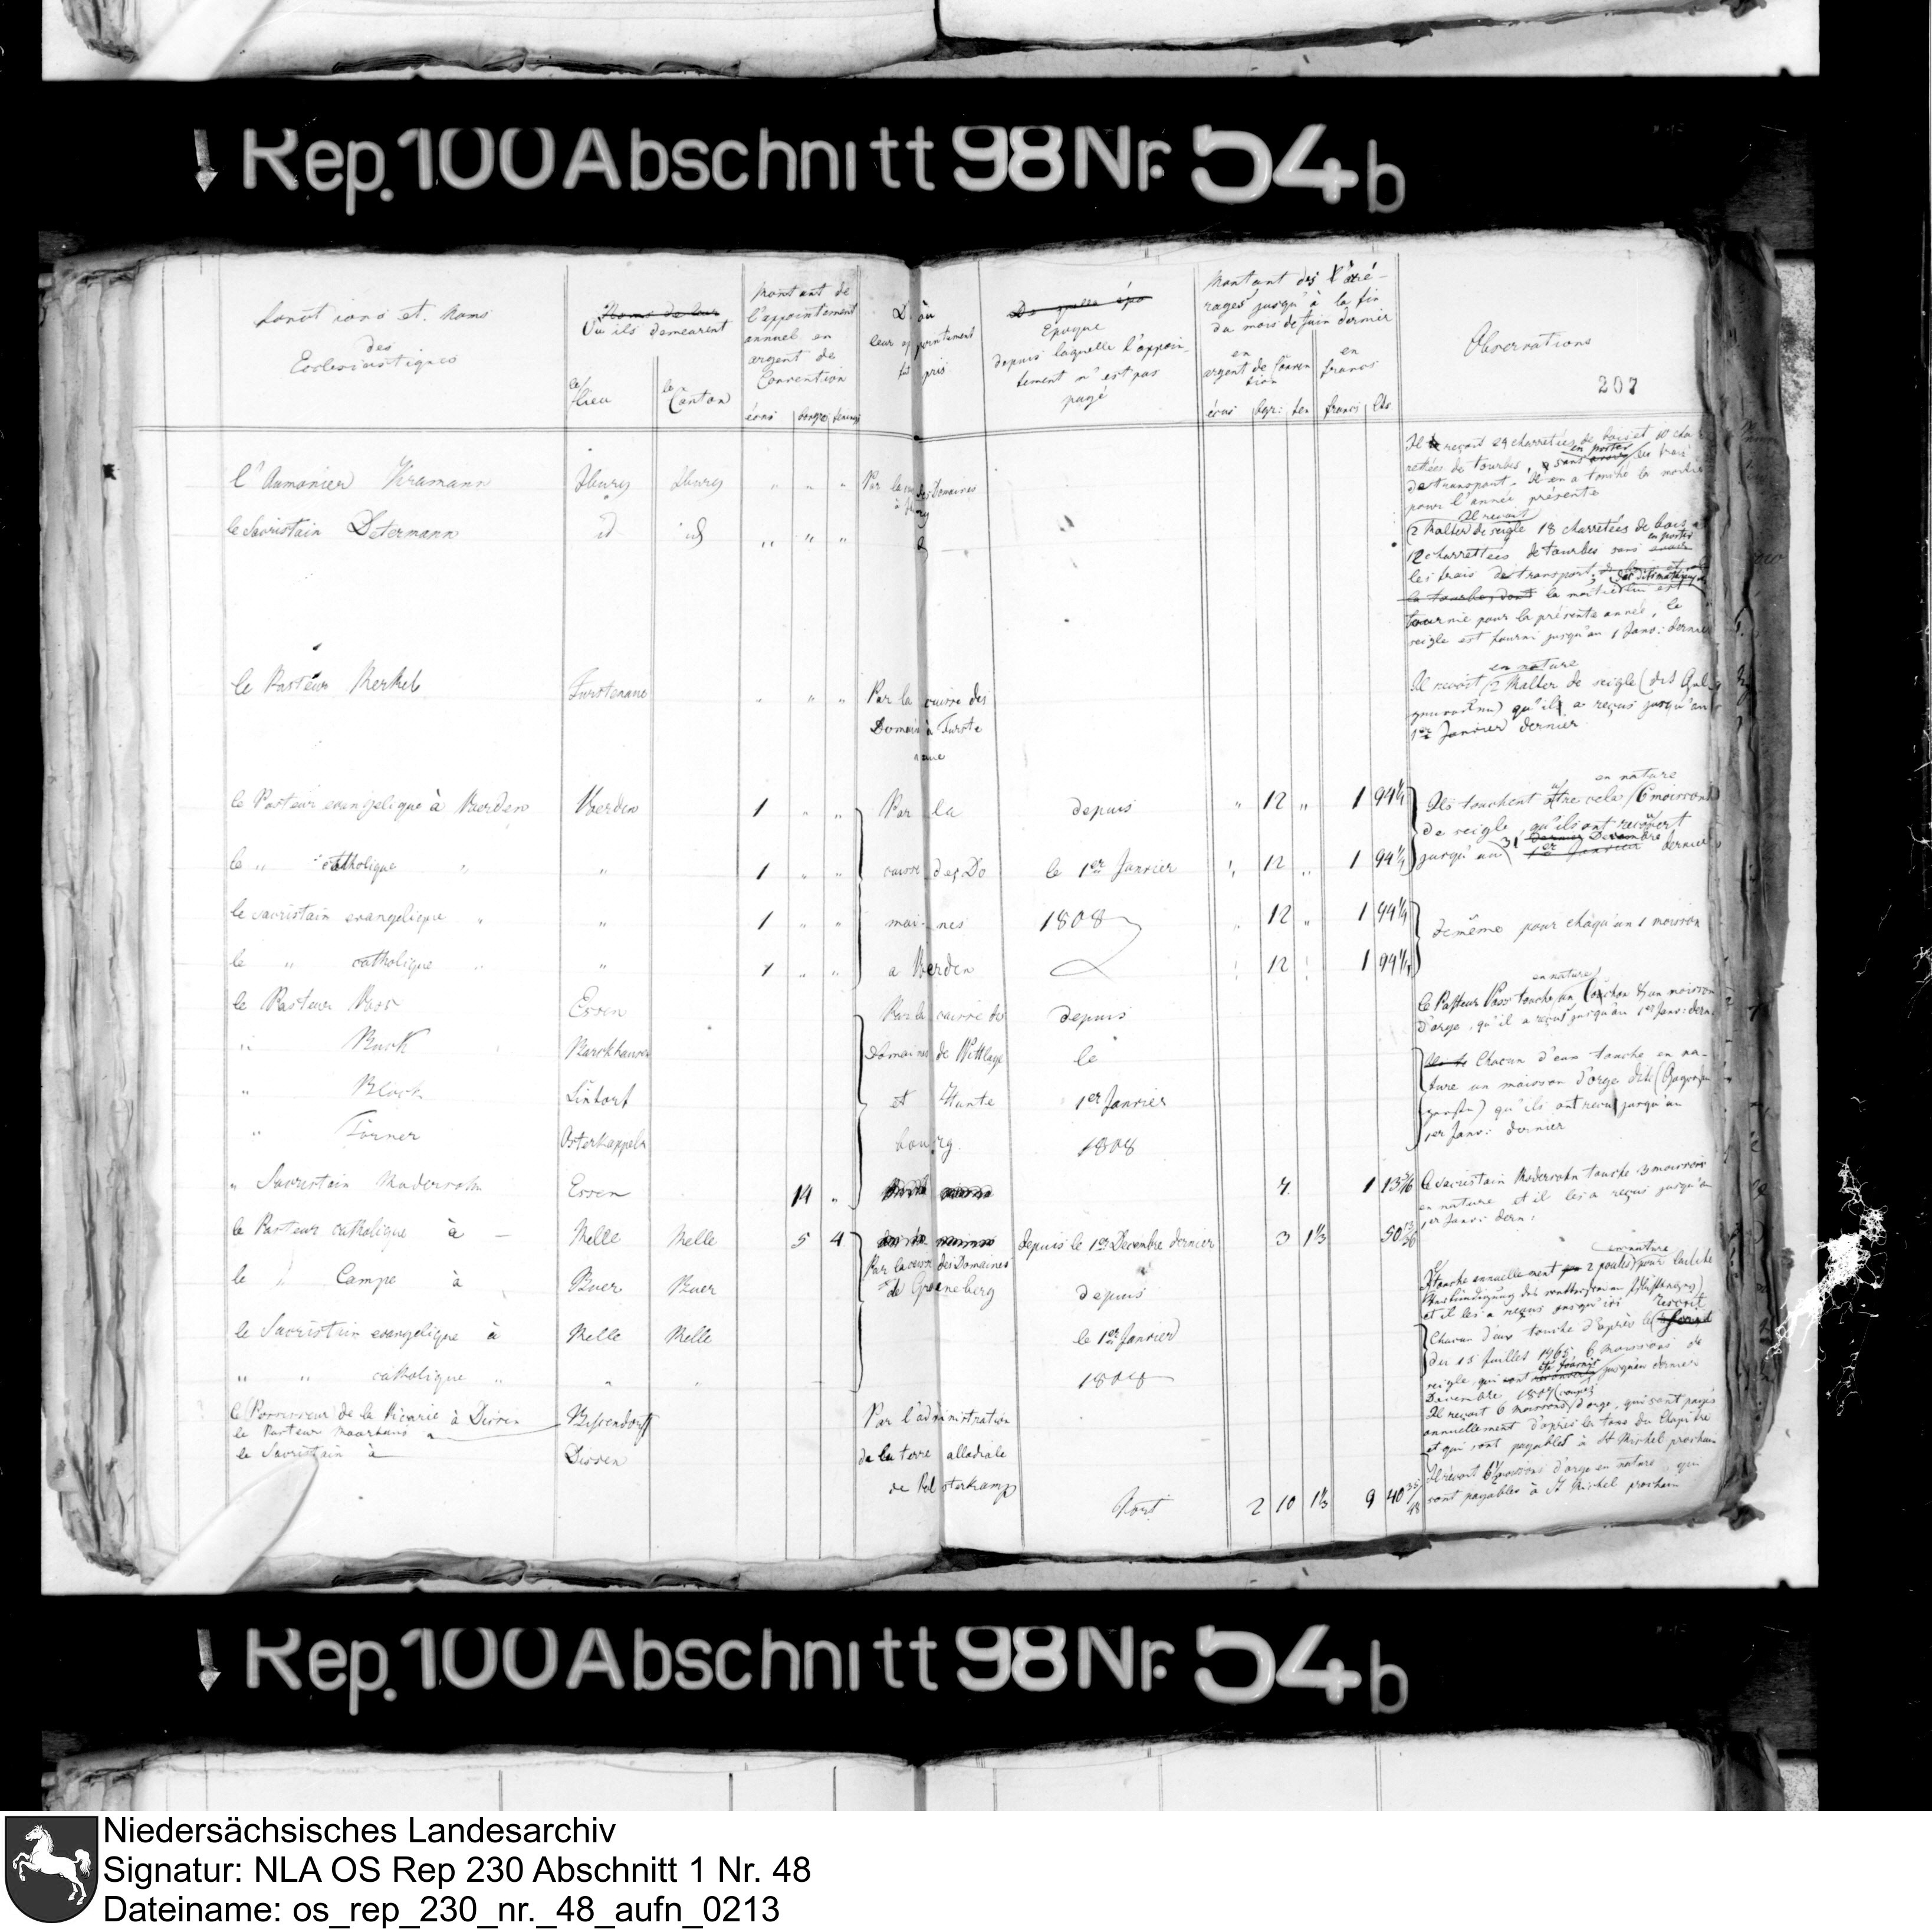 Rep. 100 Abschnitt 98 Nr. 54 b
Fonctions et Noms
des
Ecclesiastiques
Noms de leur
Où ils demeurent
le lieu
le Canton
Montant de
l'appointement
annuel en
argent de
Convention
écus
D'où
leur appointement
fut pris
De quelle épo
Epoque
depuis laquelle l'appoin-
tement n'est pas
payé
Montant des l'arré-
rages jusqu'à la fin
du mois de Juin dernier
en
argent de Conven
tion
en
francs
écus bgr: fen francs cts
Observations
207
l'Aumonier Kramann Iburg Iburg " " "
Il reçoit 24 charretées de bois et 10 char
retées de tourbes, sans en porter les frais
de transport. Il en a touché la moitié
pour l'année présente
le Sacristain Determann id id " " "
Il reçoit
2 Malter de seigle 18 charretées de bois
12 charrettées de tourbes sans en porter
les frais de transport,
la tourbe, dont la moitié est
fournie pour la présente année, le
seigle est fourni jusqu'au 1 Janv: dernier
le Pasteur Merkel Furstenau " " "
Par la caisse des
Domain à Furste
naue
en nature
Il reçoit 2 Malter de seigle
qu'il a reçus jusqu'au
1er Janvier dernier
le Pasteur evangelique à Voerden Voerden 1 " " Par la depuis " 12 " 1 94¼
le " catholique " " 1 " " caisse des Do le 1er Janvier " 12 " 1 94¼
le sacristain evangelique " " 1 " " mai- nes 1808 " 12 " 1 94¼
le " catholique " " 1 " " a Voerden " 12 " 1 94¼
en nature
Ils touchent outre cela 6 moissons
de seigle, qu'ils ont
jusqu'au 31 1er Janvier dernier
de même pour chaqu'un 1 moisson
le Pasteur Voss Essen Par la caisse des depuis
" Buck Barckhausen Domaines de Wittlage le
" Block Lintorf et Hunte 1er Janvier
" Forner Osterkappeln bourg. 1808
en nature
le Pasteur Voss touche un cochon & un moisson
d'orge, qu'il a reçus jusqu'au 1er Janv: dern.
Chacun d'eux touche en na-
ture un moisson d'orge dit
qu'ils ont reçu jusqu'au
1er Janv: dernier
" Sacristain Maderrohn Essen 14 " 7 1 13
le Sacristain Maderrohn touche 3 moissons
en nature et il les a reçus jusqu'au
1er Janv: dern:
le Pasteur catholique à — Melle Melle 5 4 depuis le 1er Decembre dernier 3 1⅓ 50
Par la caisse des Domaines
de Groeneberg
le " Campe à Buer Buer depuis
le Sacristain evangelique à Melle Melle le 1er Janvier
" " catholique " " " 1808
en nature
Il touche annuellement 2 poules pour
et il les a reçus jusqu'ici
Chacun d'eux touche d'après le
du 15 Juillet 1765 6 moissons de
seigle, qui ont été fournis jusqu'en dernier
Decembre 1807
le Possesseur de la Vicarie à Dissen
le Pasteur Maarhaus à Bissendorff Par l'administration
le Sacristain à Dissen de la terre allodiale
de Pal sterkamp
Il reçoit 6 moissons d'orge, qui sont payés
annuellement d'après la taxe du Chapitre
et qui sont payables à St Michel prochain
Il reçoit 6 moissons d'orge en nature qui
sont payables à St Michel prochain
2 10 1⅓ 9 40 35/48
Rep. 100 Abschnitt 98 Nr. 54 b
Niedersächsisches Landesarchiv
Signatur: NLA OS Rep 230 Abschnitt 1 Nr. 48
Dateiname: os_rep_230_nr._48_aufn_0213